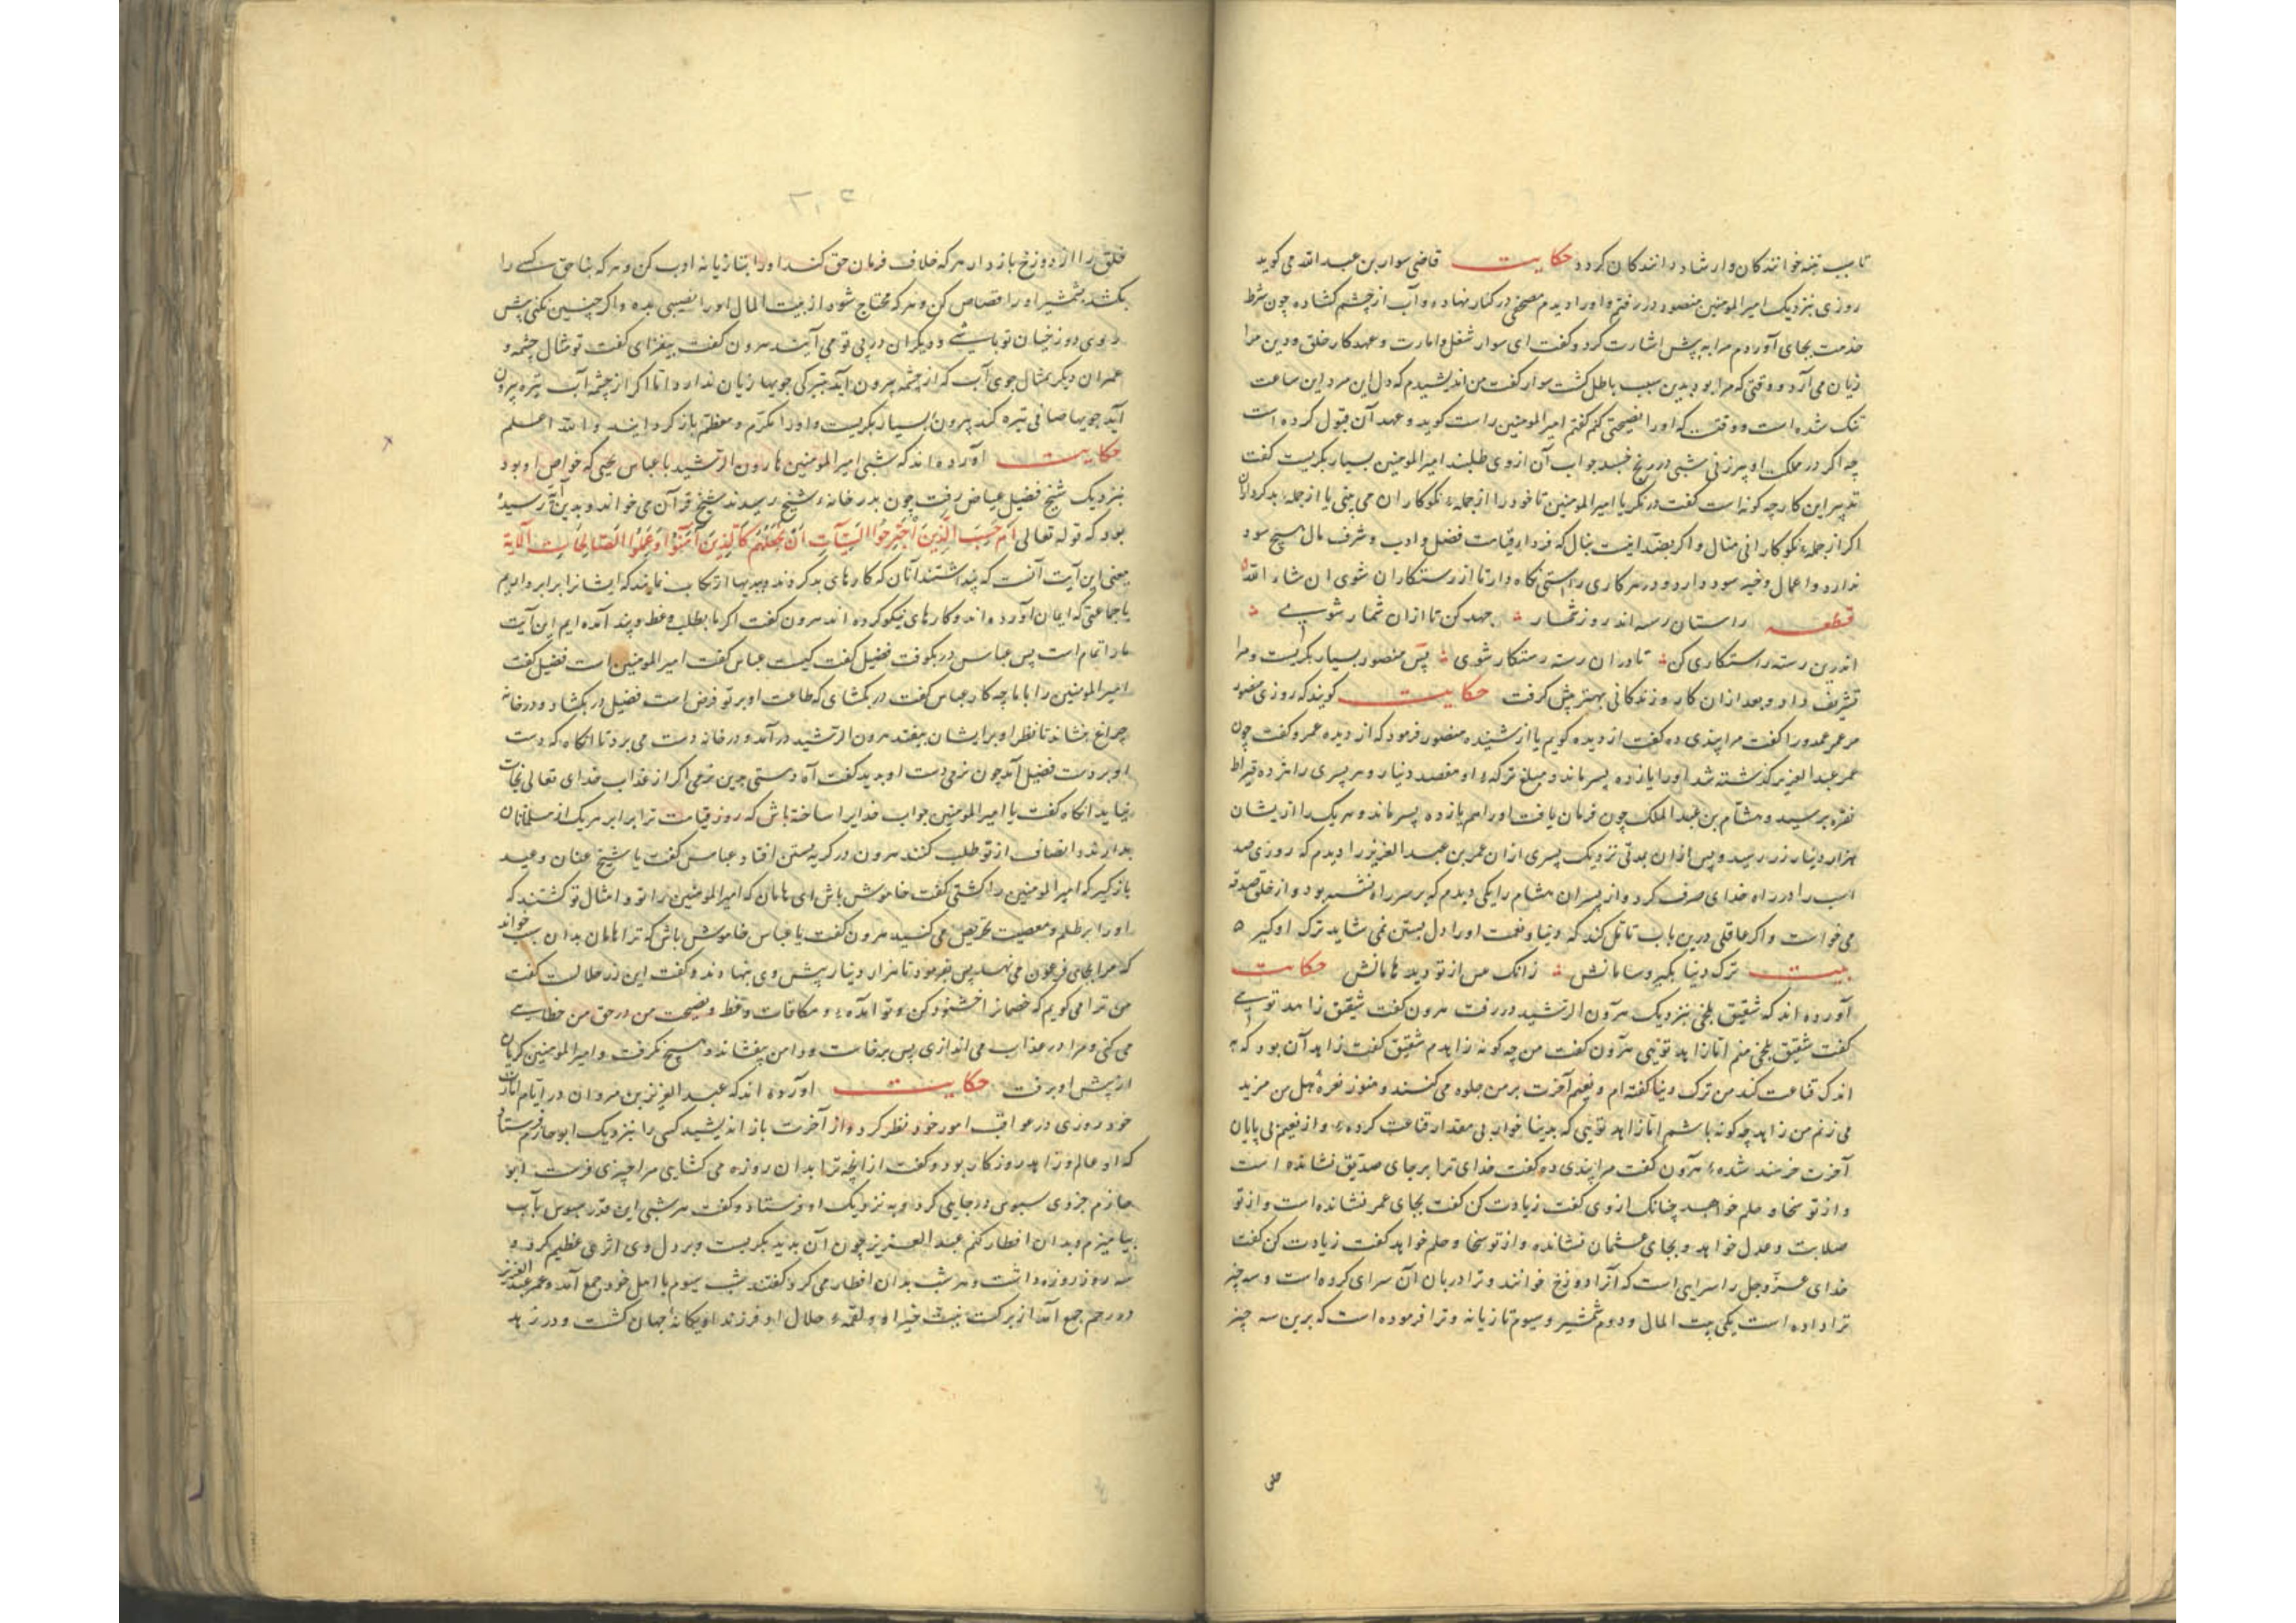 تا سبب تنبه خوانندگان و ارشاد دانندگان کردد حکایت قاضی سوار بن عبد الله می کوید
روزی بنزدیک امیر المومنین منصور در رفتم و او را دیدم مصحفی در کنار نهاده و آب از چشم کشاده چون شرط
خدمت بجای آوردم مرا به پیش اشارت کرد و کفت ای سوار شغل و امارت و عهد کار خلق و دین مرا
زیان می آرد و وقتی که مرا بود بدین سبب باطل کشت سوار کفت من اندیشیدم که دل این مرد این ساعت
تنک شده است و وقتست که او را نصیحتی کنم کفتم امیر المومنین راست کوید و عهد آن قبول کرده است
چه اکر در مملکت او پیرزنی شبی در رنج خسبد جواب آن از وی طلبند امیر المومنین بسیار بکریست کفت
تدبیر این کار چه کونه است کفت در نکر یا امیر المومنین تا خود را از جملهٔ نکوکاران می بینی یا از جملهٔ بدکرداران
اکر از جملهٔ نکوکارانی منال و اکر بضد اینست بنال که فردا در قیامت فضل و ادب و شرف مال هیچ سود
ندارد و اعمال و خیر سود دارد و در هر کاری راستی نکاه دار تا از رستکاران شوی ان شاء الله
قطعه راستان رسته اند روز شمار جهد کن تا ازان شمار شوی
اندرین رسته راستکاری کن تا دران رسته رستکار شوی پس منصور بسیار بکریست و مرا
تشریف داد و بعد ازان کار و زندکانی بهتر پیش کرفت حکایت کویند که روزی منصور
مر عمر عمدور را کفت مرا پندی ده کفت از دیده کویم یا از شنیده منصور فرمود که از دیده عمرو کفت چون
عمر عبد العزیز کذشته شد او را یازده پسر ماند و مبلغ ترکهٔ او هفصد دینار و هر پسری را نزده قیراط
نقره برسید و هشام بن عبد الملک چون فرمان یافت او را هم یازده پسر ماند و هر یک را از یشان
هزار دینار زر رسید و پس ازان بمدتی نزدیک پسری ازان عمر بن عبد العزیز را دیدم که روزی صد
اسب را در راه خدای صرف کرد و از پسران هشام را یکی دیدم که بر سر راه نشسته بود و از خلق صدقه
می خواست و اکر عاقلی درین باب تامل کند که دنیا و نعمت او را دل بستن نمی شاید ترک او کیرد
بیت ترک دنیا بکیر و سامانش زانک من از تو دیده ام مانش حکایت
آورده اند که شقیق بلخی بنزدیک هرون الرشید در رفت هرون کفت شقیق زاهد توی
کفت شقیق بلخی منم اما زاهد توئی هرون کفت من چه کونه زاهدم شقیق کفت زاهد آن بود که به
اندک قناعت کند من ترک دنیا کفته ام و نعیم آخرت بر من جلوه می کنند و هنوز نعرهٔ هل من مزید
می زنم من زاهد چه کونه باشم اما زاهد توئی که بدنیا خوار بی مقدار قناعت کردهٔ و از نعیم بی پایان
آخرت خرسند شدهٔ هرون کفت مرا پندی ده کفت خدای ترا بر جای صدیق نشانده است
و از تو سخا و حلم خواهد چنانک از وی کفت زیادت کن کفت بجای عمر نشانده است و از تو
صلابت و عدل خواهد و بجای عثمان نشانده و از تو سخا و حلم خواهد کفت زیادت کن کفت
خدای عز و جل را سرایی است که آنرا دوزخ خوانند و ترا دربان آن سرای کرده است و سه چیز
ترا داده است یکی بیت المال و دوم شمشیر و سیوم تازیانه و ترا فرموده است که برین سه چیز
خلق
خلق را از دوزخ باز دار هر که خلاف فرمان حق کند او را بتازیانه ادب کن و هر که بناحق کسی را
بکشد بشمشیر او را قصاص کن و هر که محتاج شود از بیت المال او را نصیبی بده و اکر چنین نکنی پیش
روی دوزخیان تو باشی و دیکران در پی تو می آیند هرون کفت بیفزای کفت تو مثال چشمه و
عمران دیکر مثال جوی آب که از چشمه بیرون آید تیرکی جویها زیان ندارد اما اکر از چشمه آب تیره بیرون
آید جویها صافی تیره کند هرون بسیار بکریست و او را مکرم و معظم باز کردانید و الله اعلم
حکایت آورده اند که شبی امیر المومنین هارون الرشید با عباس یحیی که خواص او بود
بنزدیک شیخ فضیل عیاض رفت چون بدر خانهٔ شیخ رسیدند شیخ قرآن می خواند و بدین آیة رسیده
بود که قوله تعالی اَمْ حَسِبَ الَّذِینَ اجْتَرَحُوا السَّیِّآتِ اَنْ نَجْعَلَهُمْ کَالَّذِینَ آمَنُوا وَعَمِلُوا الصَّالِحَاتِ الآیة
معنی این آیت آنست که پنداشتند آنان که کارهای بد کردند و بدیها ارتکاب نمایند که ایشانرا برابر داریم
با جماعتی که ایمان آورده اند و کارهای نیکو کرده اند هرون کفت اکر ما بطلب وعظ و پند آمده ایم این آیت
ما را تمام است پس عباس در بکوفت فضیل کفت کیست عباس کفت امیر المومنین است فضیل کفت
امیر المومنین را با ما چه کار عباس کفت در بکشای که طاعت او بر تو فرض است فضیل در بکشاد و در خانه
چراغ بنشاند تا نظر او بر ایشان نیفتد هرون الرشید در آمد و در خانه دست می برد تا آنکاه که دست
او بر دست فضیل آمد چون نرمی دست او بدید کفت آه دستی چنین نرمی اکر از عذاب خدای تعالی نجات
نیابد آنکاه کفت یا امیر المومنین جواب خدایرا ساخته باش که روز قیامت ترا برابر هر یک از مسلمانان
بدارند و انصاف از تو طلب کنند هرون در کریستن افتاد عباس کفت یا شیخ عنان وعید
باز کیر که امیر المومنین را کشتی کفت خاموش باش ای هامان که امیر المومنین را تو و امثال تو کشتند که
او را بر ظلم و معصیت تحریص می کنید هرون کفت یا عباس خاموش باش که ترا هامان بدان سبب خواند
که مرا بجای فرعون می نهد پس بفرمود تا هزار دینار پیش وی بنهادند و کفت این زر حلالست کفت
من ترا می کویم که خصمانرا خشنود کن و تو آمدهٔ و مکافات وعظ و نصیحت من در حق من خطایی
می کنی و مرا در عذاب می اندازی پس برخاست و دامن بیفشاند و هیچ نکرفت و امیر المومنین کریان
از پیش او برفت حکایت آورده اند که عبد العزیز بن مروان در ایام امارت
خود روزی در عواقب امور خود نظر کرد و از آخرت باز اندیشید کسی را بنزدیک ابو حازم فرستاد
که او عالم و زاهد روزکار بود و کفت از آنچه ترا بدان روزه می کشایی مرا چیزی فرست ابو
حازم جزوی سبوس در جایی کرد و به نزدیک او فرستاد و کفت هر شبی این قدر سبوس بآب
بیامیزم و بدان افطار کنم عبد العزیز چون آن بدید بکریست و بر دل وی اثری عظیم کرد و
سه روز روزه داشت و هر شب بدان افطار می کرد کفتند شب سیوم با اهل خود جمع آمد و عمر عبد العزیز
در رحم جمع آمد از برکت نیت خیر او و لقمهٔ حلال او فرزند او یکانهٔ جهان کشت و در زهد